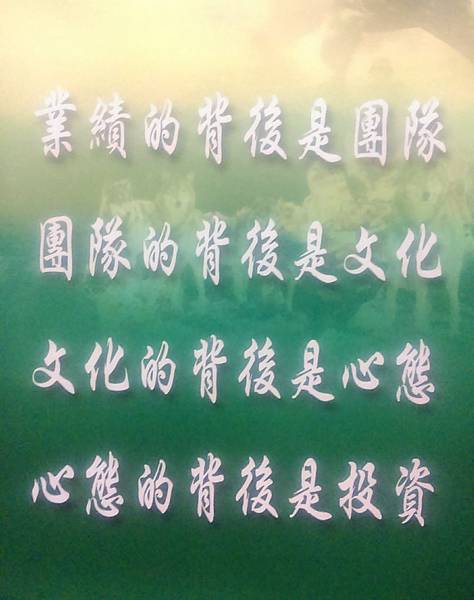 業績的背後是團隊
團隊的背後是文化
文化的背後是心態
心態的背後是投資